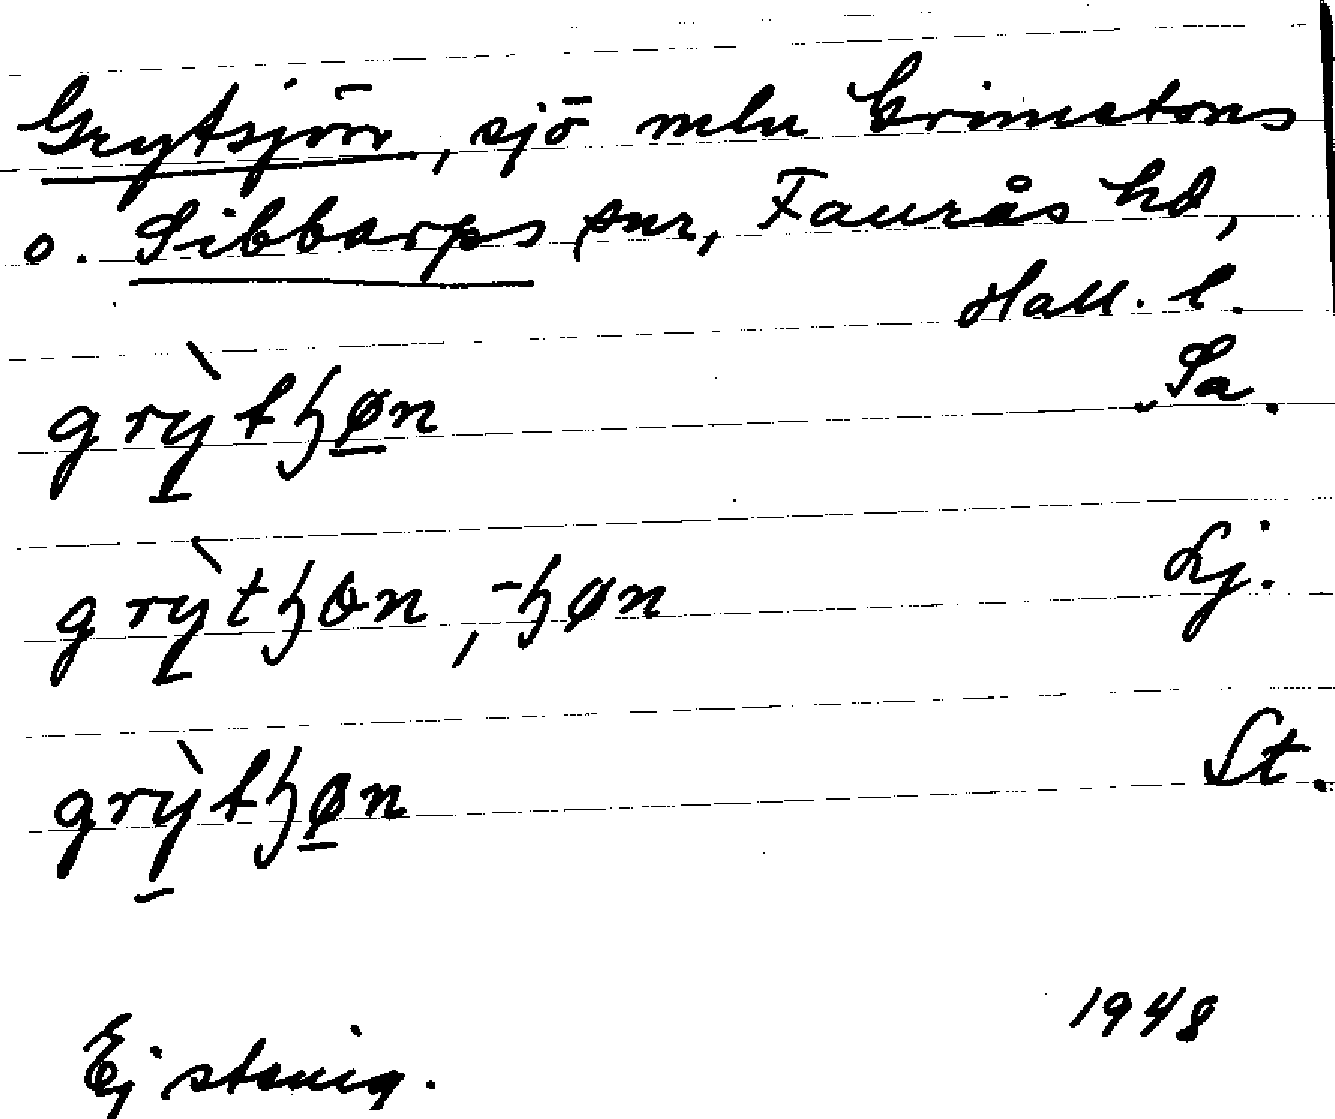 Grytsjön, sjö mln Grimetons
o. Sibbarps snr, Faurås hd,
Hall. l.
grỳtɧøn Sa.
grỳtɧön, -ɧøn Lj.
grỳtɧøn St.
1948
Ej stenig.